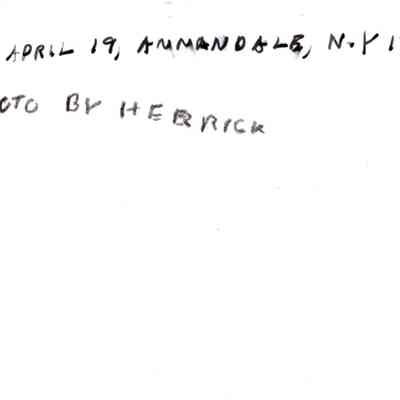 APRIL 19, ANNANDALE, N.Y 1
OTO BY HERRICK